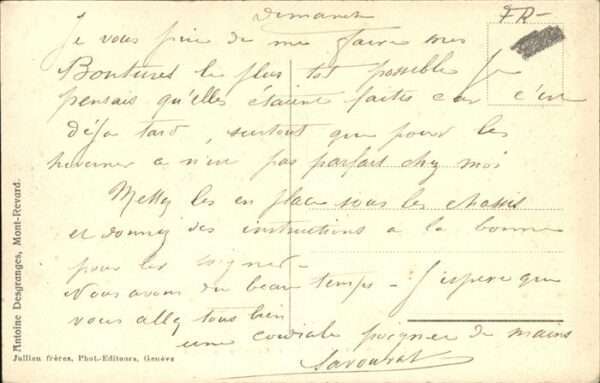 Dimanche
FR-
Je vous prie de me faire mes
Boutures le plus tot possible Je
pensais qu'elles étaient faites car c'est
déja tard, surtout que pour les
hiverner a n'est pas parfait chez moi
Mettez les en place sous les chassis
et donnez des instructions a la bonne
pour les soigner -
Nous avons du beau temps - J'espère que
vous allez tous bien
une cordiale poignee de mains
Antoine Desgranges, Mont-Revard.
Jullien frères, Phot.-Editeurs, Genève